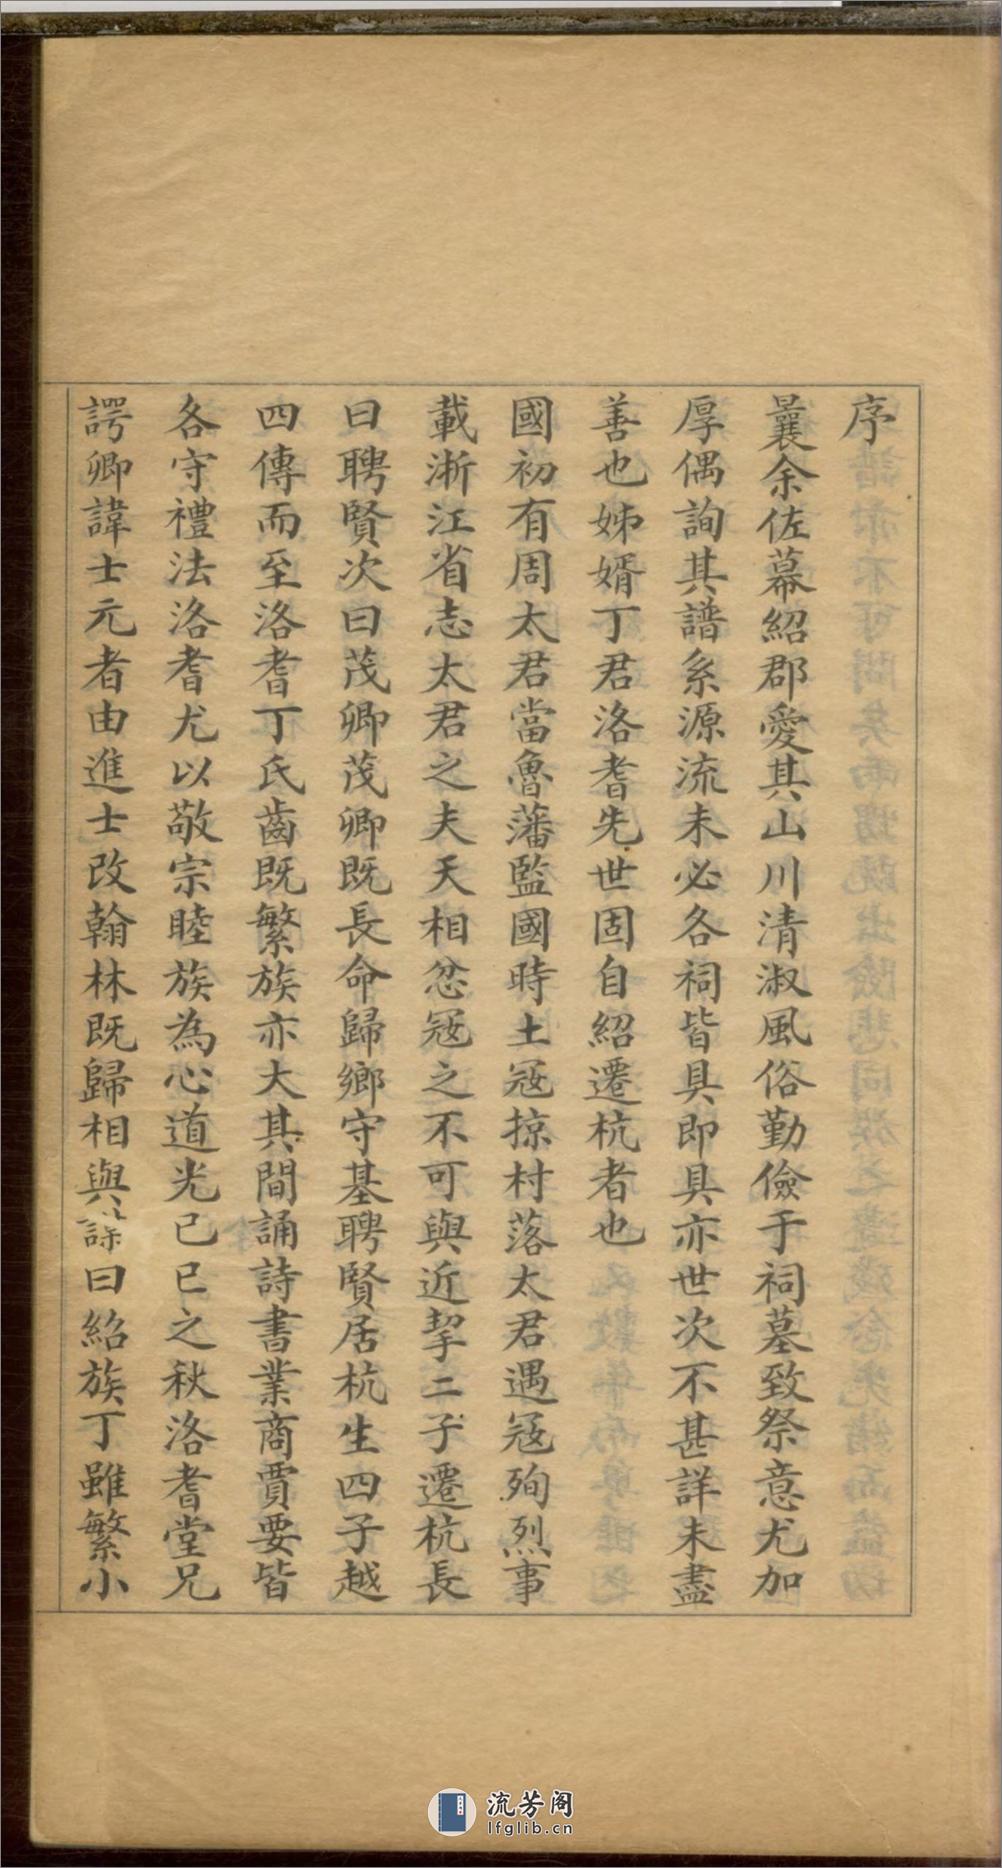 序
曩余佐幕紹郡愛其山川清淑風俗勤儉于祠墓致祭意尤加
厚偶詢其譜系源流未必各祠皆具即具亦世次不甚詳未盡
善也姊婿丁君洛耆先世固自紹遷杭者也
國初有周太君當魯藩監國時土冦掠村落太君遇冦殉烈事
載淅江省志太君之夫天相忿冦之不可與近挈二子遷杭長
曰聘賢次曰茂卿茂卿既長命歸鄉守基聘賢居杭生四子越
四傳而至洛耆丁氏齒既繁族亦大其間誦詩書業商賈要皆
各守禮法洛耆尤以敬宗睦族為心道光已巳之秋洛耆堂兄
諤卿諱士元者由進士改翰林既歸相與謀曰紹族丁雖繁小
流芳阁
lfglib.cn